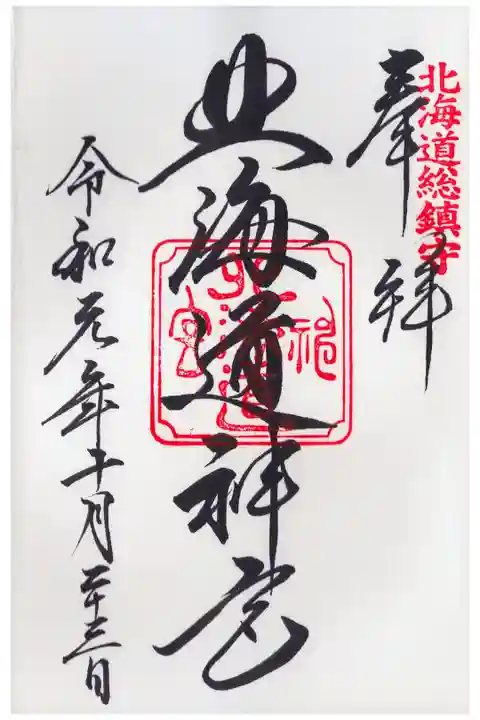 北海道総鎮守
奉拝
北海道神宮
令和元年十月二十三日